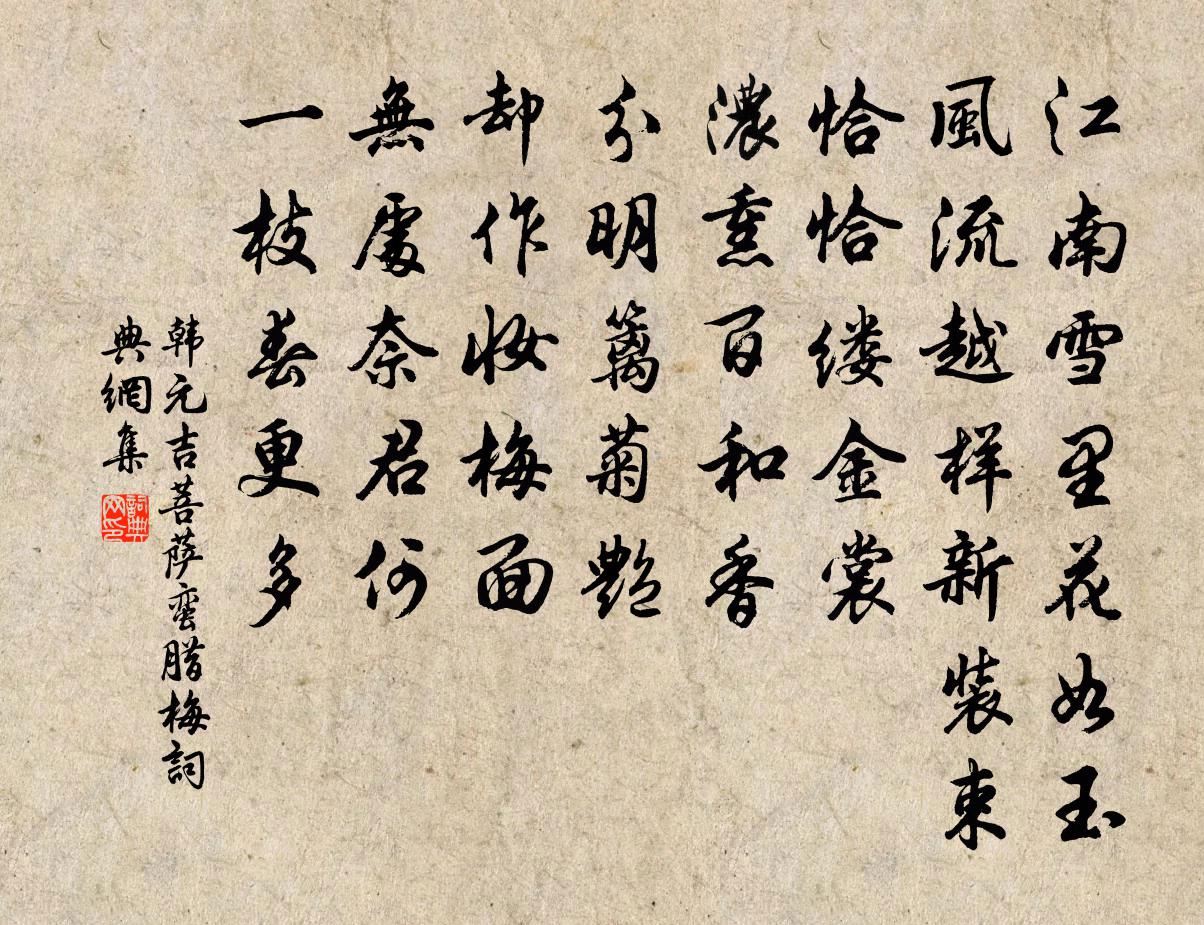 江南雪里花如玉
風流越样新装束
恰恰缕金裳
濃熏百和香
分明篱菊艶
却作妆梅面
無處奈君何
一枝春更多
韩元吉菩萨蛮腊梅詞
典網集
詞典網印